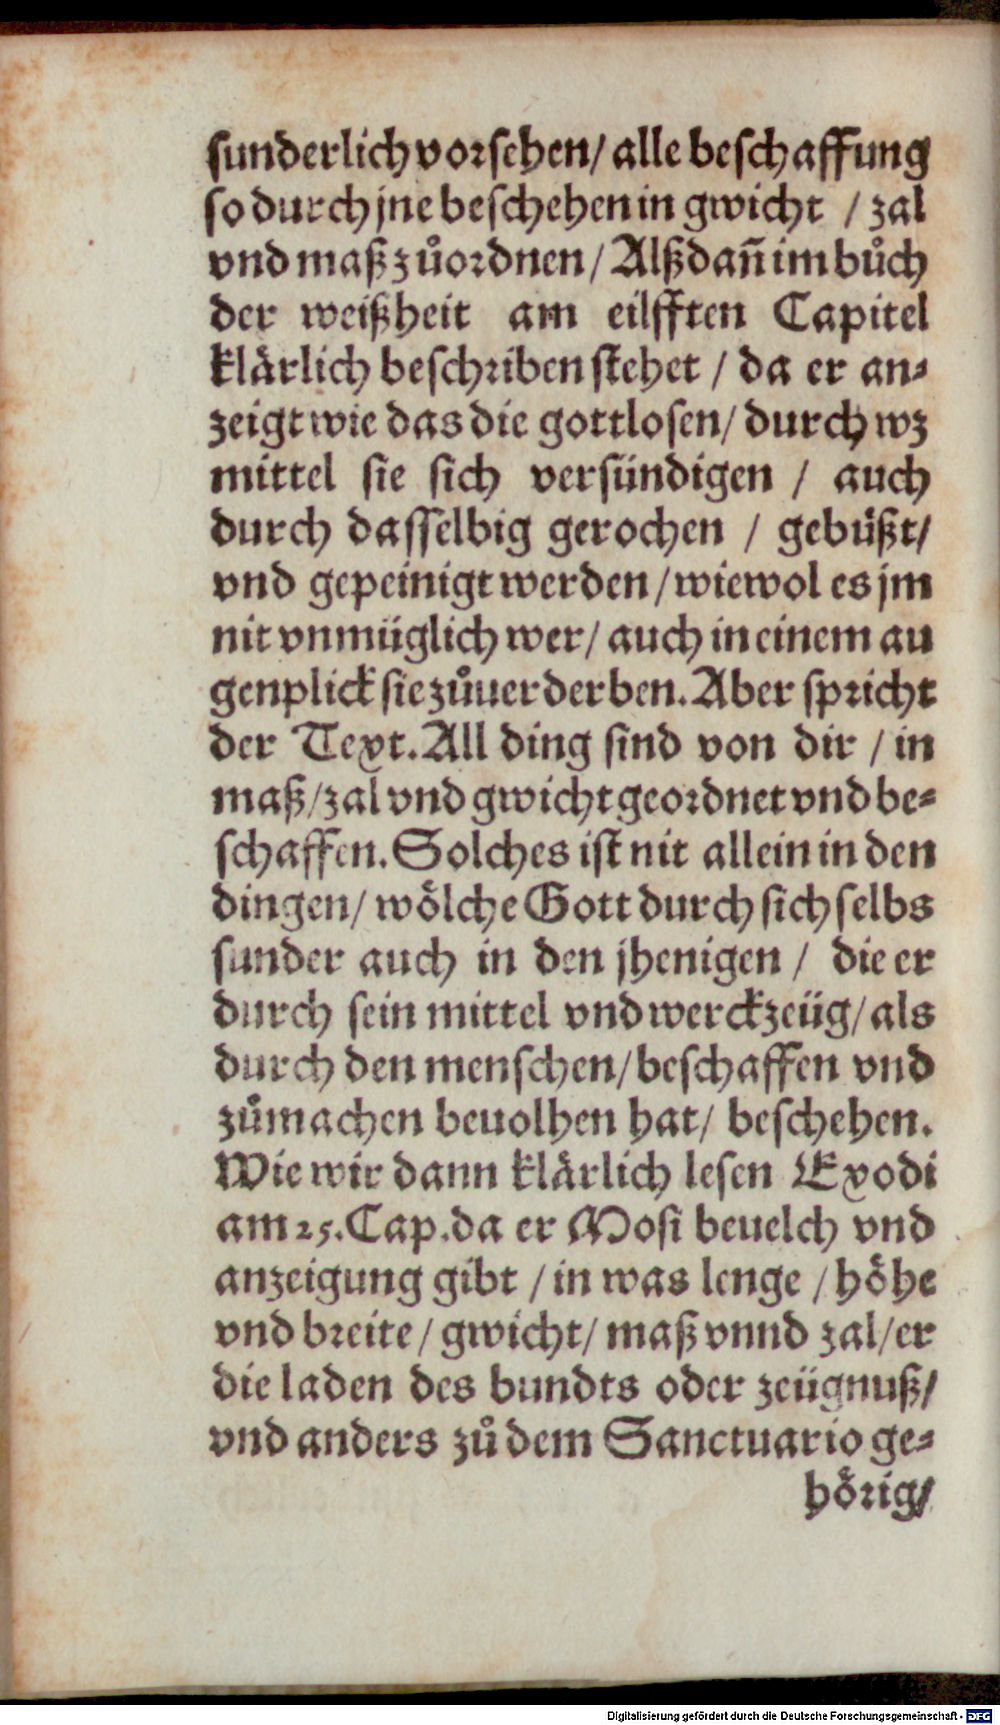 sunderlich vorsehen/ alle beschaffung
so durch jne beschehen in gwicht / zal
vnd maß zůordnen/ Alßdañ im bůch
der weißheit am eilfften Capitel
klärlich beschriben stehet / da er an-
zeigt wie das die gottlosen/ durch wz
mittel sie sich versündigen / auch
durch dasselbig gerochen / gebüßt/
vnd gepeinigt werden/ wiewol es jm
nit vnmüglich wer/ auch in einem au
genplick sie zůuerderben. Aber spricht
der Text. All ding sind von dir / in
maß/ zal vnd gwicht geordnet vnd be-
schaffen. Solches ist nit allein in den
dingen/ wölche Gott durch sich selbs
sunder auch in den jhenigen / die er
durch sein mittel vnd werckzeüg/ als
durch den menschen/ beschaffen vnd
zůmachen beuolhen hat/ beschehen.
Wie wir dann klärlich lesen Exodi
am 25. Cap. da er Mosi beuelch vnd
anzeigung gibt / in was lenge / höhe
vnd breite/ gwicht/ maß vnnd zal/ er
die laden des bundts oder zeügnuß/
vnd anders zů dem Sanctuario ge-
hörig/
Digitalisierung gefördert durch die Deutsche Forschungsgemeinschaft - DFG